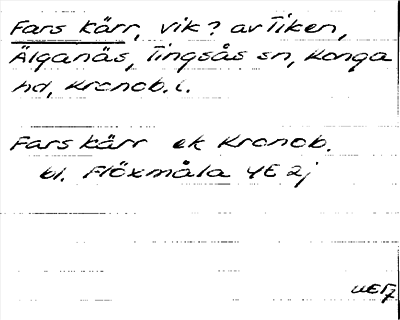 Fars kärr, vik? av Tiken,
Älganäs, Tingsås sn, Konga
hd, Kronob. l.
Fars kärr ek Kronob.
bl. Flöxmåla 4E 2j